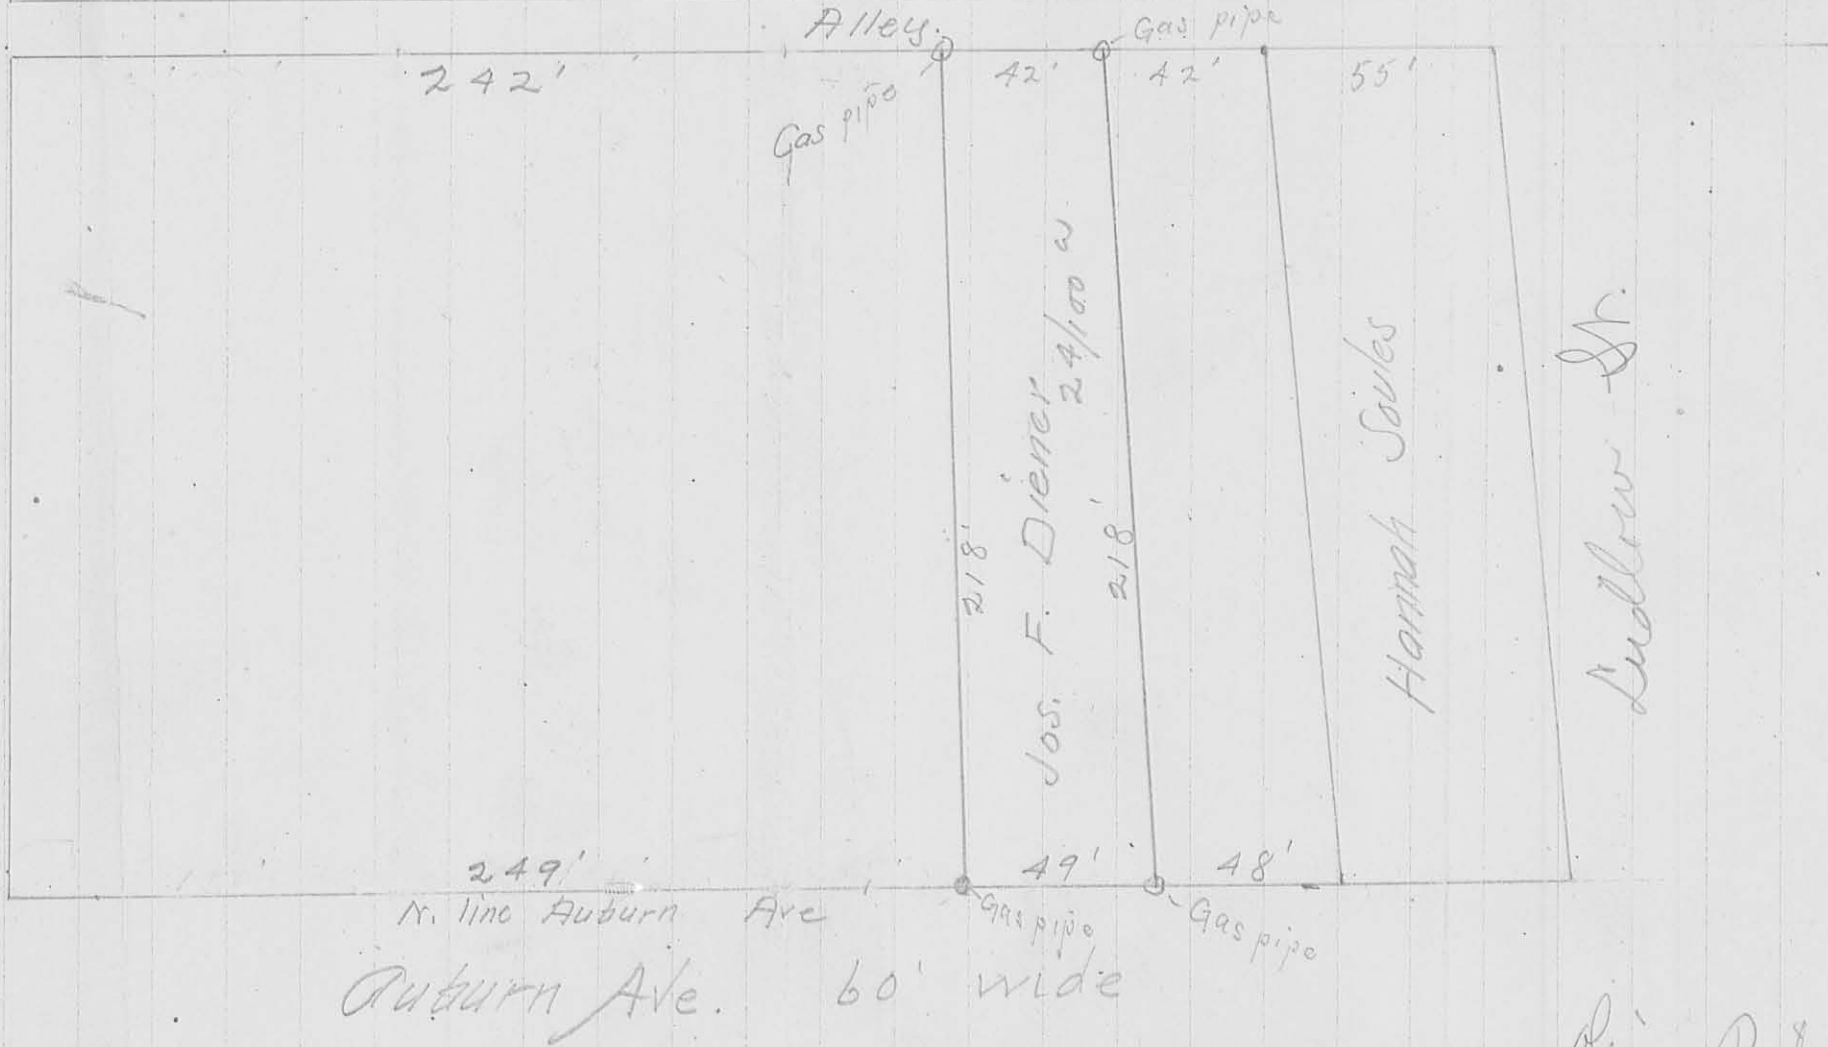 Alley.
Gas pipe
242'
42'
42'
55'
Gas pipe
Jos. F. Diener
24/100 a
218'
218'
Hannah Soules
Ludlow St.
249'
49'
48'
N. line Auburn Ave
Gas pipe
Gas pipe
Auburn Ave. 60' wide